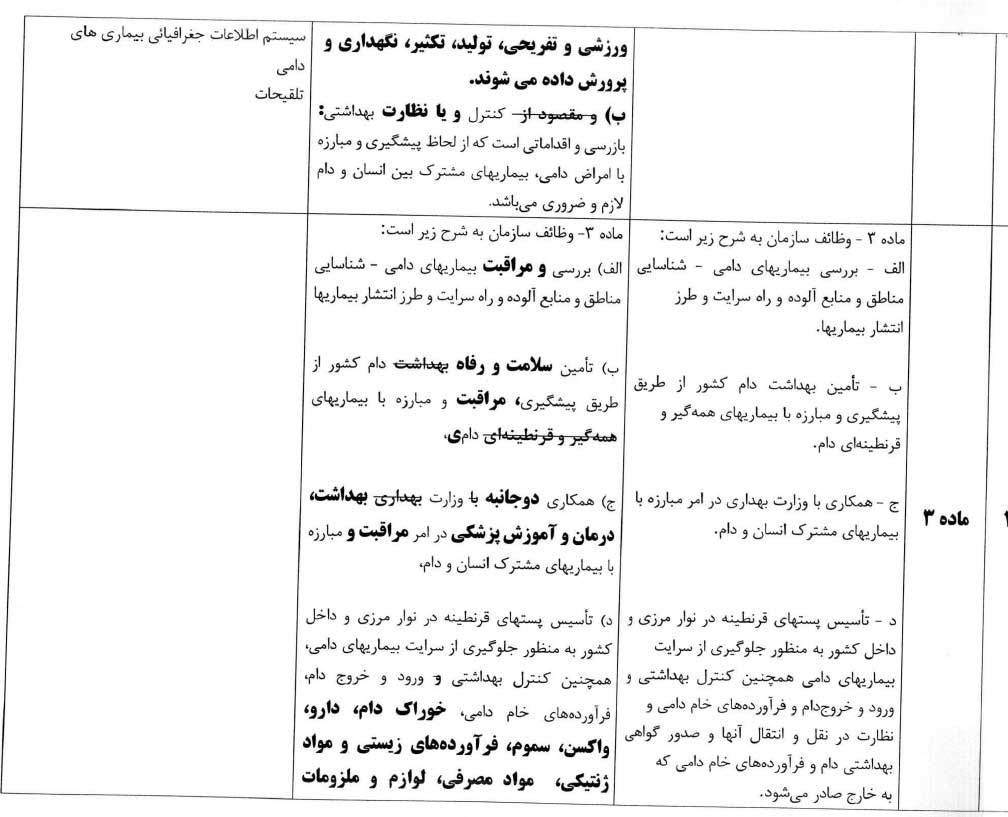 ورزشی و تفریحی، تولید، تکثیر، نگهداری و
پرورش داده می شوند.
ب) و مقصود از کنترل و یا نظارت بهداشتی:
بازرسی و اقداماتی است که از لحاظ پیشگیری و مبارزه
با امراض دامی، بیماریهای مشترک بین انسان و دام
لازم و ضروری می‌باشد.
سیستم اطلاعات جغرافیائی بیماری های
دامی
تلقیحات
ماده ۳
ماده ۳ - وظائف سازمان به شرح زیر است:
الف - بررسی بیماریهای دامی - شناسایی
مناطق و منابع آلوده و راه سرایت و طرز
انتشار بیماریها.
ب - تأمین بهداشت دام کشور از طریق
پیشگیری و مبارزه با بیماریهای همه‌گیر و
قرنطینه‌ای دام.
ج - همکاری با وزارت بهداری در امر مبارزه با
بیماریهای مشترک انسان و دام.
د - تأسیس پستهای قرنطینه در نوار مرزی و
داخل کشور به منظور جلوگیری از سرایت
بیماریهای دامی همچنین کنترل بهداشتی و
ورود و خروج‌دام و فرآورده‌های خام دامی و
نظارت در نقل و انتقال آنها و صدور گواهی
بهداشتی دام و فرآورده‌های خام دامی که
به خارج صادر می‌شود.
ماده ۳- وظائف سازمان به شرح زیر است:
الف) بررسی و مراقبت بیماریهای دامی - شناسایی
مناطق و منابع آلوده و راه سرایت و طرز انتشار بیماریها
ب) تأمین سلامت و رفاه بهداشت دام کشور از
طریق پیشگیری، مراقبت و مبارزه با بیماریهای
همه‌گیر و قرنطینه‌ای دامی،
ج) همکاری دوجانبه با وزارت بهداری بهداشت،
درمان و آموزش پزشکی در امر مراقبت و مبارزه
با بیماریهای مشترک انسان و دام،
د) تأسیس پستهای قرنطینه در نوار مرزی و داخل
کشور به منظور جلوگیری از سرایت بیماریهای دامی،
همچنین کنترل بهداشتی و ورود و خروج دام،
فرآورده‌های خام دامی، خوراک دام، دارو،
واکسن، سموم، فرآورده‌های زیستی و مواد
ژنتیکی، مواد مصرفی، لوازم و ملزومات